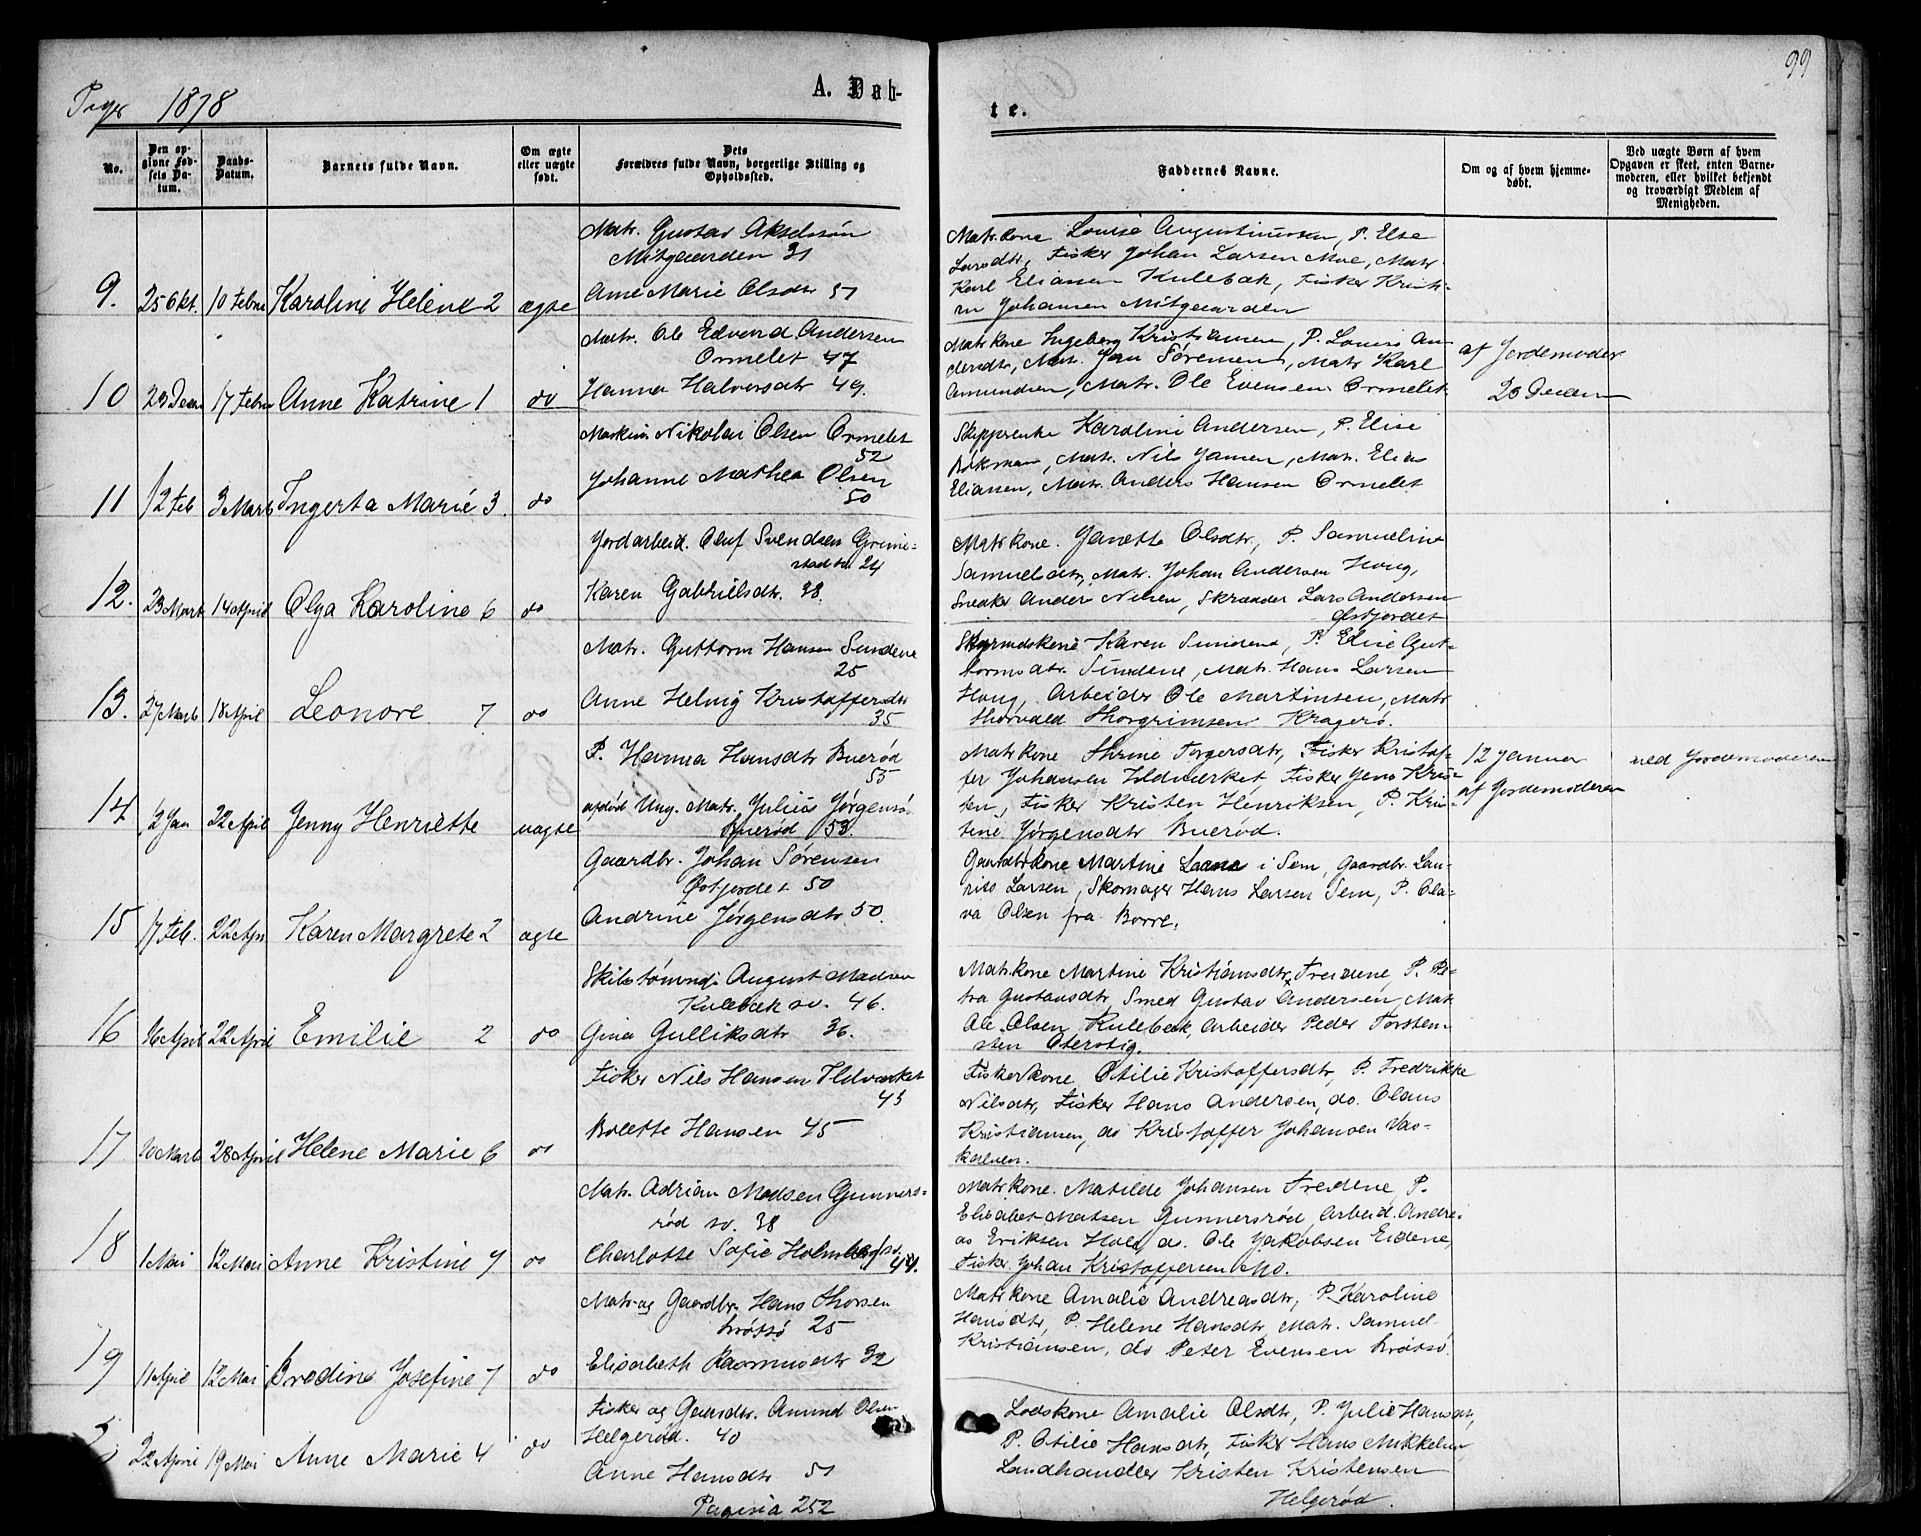 99
Piger 1878
A. Daab-
te.
No.
Den op-
givne Fød-
sels Da-
tum.
Daabs-
Datum.
Barnets fulde Navn.
Om ægte
eller uægte
født.
Dets
Forældres fulde Navn, borgerlige Stilling og
Opholdssted.
Faddernes Navne.
Om og af hvem hjemme-
døbt.
Ved uægte Børn af hvem
Opgaven er skeet, enten Barne-
moderen, eller hvilket bekjendt
og troværdigt Medlem af
Menigheden.
9. 25 Okt. 10 Febru Karoline Helene 2 ægte
Matr. Gustav Akselssøn
Mitgaarden 31
Anne Marie Olsdtr 51
Matr. kone Louise Augustinussen, P. Else
Larsdtr, Fisker Johan Larsen Moe, Matr.
Karl Eliassen Kulebak, Fisker Kristi-
an Johansen Mitgaarden
10 23 Decbr 17 Febru Anne Katrine 1 do
Matr. Ole Edvard Andersen
Ormelet 47
Hanna Halvorsdtr 49.
Matr kone Ingeborg Kristiansen, P. Louise An-
dersdtr, Matr. Jan Sørensen, Matr Karl
Amundsen, Matr. Ole Evensen Ormelet.
af Jordemoder
23 Decem
11 12 Feb 3 Marts Ingerta Marie 3. do
Maskin. Nikolai Olsen Ormelet
52
Johanne Mathea Olsen
50
Skipperenke Karoline Andersen, P. Elise
Bökman, Matr. Nils Jansen, Matr. Elias
Eliassen, Matr. Anders Hansen Ormelet
12. 23 Marts 14 April Olga Karoline 6 do
Jordarbeid. Oluf Svendsen Grim-
stad 24
Karen Gabrielsdtr. 38.
Matr kone. Janette Olsdtr, P. Samueline
Samuelsdtr, Matr. Johan Andersen Houg,
Snedker Anders Nilsen, Skrædder Lars Andersen
Østfjordet
13. 27 Marts 18 April Leonore 7 do
Matr. Guttorm Hansen Sundene
25
Anne Helvig Kristoffersdtr
35
Karen Sundene, P. Elise Gut-
tormsdtr. Sundene, Matr. Hans Larsen
Houg, Arbeider Ole Martinsen, Matr
Thorvald Thorgrimsen Kragerø.
14. 12 Jan 22 April Jenny Henriette uægte
P. Hanna Hansdtr Buerød
55
afdød Ung. Matr. Julius Jørgens
Buerød 53.
Matr kone Thrine Torgersdtr, Fisker Kristof-
fer Johansen Ildværket, Fisker Jens Kris-
ten, Fisker Kristen Henriksen, P. Kris-
tine Jørgensdtr Buerød.
12 Januar
af Jordemoderen
ved Jordemoderen
15 17 Feb. 22 Apr Karen Margrete 2 ægte
Gaardbr. Johan Sørensen
Østfjordet 50
Andrine Jørgensdtr 50.
Gaardbrkone Martine i Sem, Gaardbr. Lau-
rits Larsen, Skomager Hans Larsen Sem, P. Ola-
va Olsen fra Borre.
16 16 April 22 April Emilie 2 do
Skibstømmd. August Madsen
Kulebæk sv. 46.
Gina Gulliksdtr 36.
Matr. kone Martine Kristiansdtr, Treidene, P. Pe-
tra Gustavsdtr, Smed Gustav Andersen, Matr
Ole Olsen Kulebæk, Arbeider Peder Torsten-
sten Oterstig.
17 10 Marts 28 April Helene Marie 6 do
Fisker Nils Hansen Ildværket
43
Bolette Hansen 45
Fiskerkone Otilie Kristoffersdtr, P. Fredrikke
Nilsdtr, Fisker Hans Andersen, do. Olaus
Kristiansen, do Kristoffer Johansen Vas-
kalven.
18 1 Mai 12 Mai Anne Kristine 4 do
Matr. Adrian Madsen Gunners-
rød sv. 38
Charlotte Sofie Holmberg sv.
44.
Matr kone. Matilde Johansen Treidene, P.
Elisabet Matsen Gunnersrød, Arbeid. Andre-
as Eriksen Hole, do. Ole Jakobsen Eidene,
Fisker Johan Kristoffersen Mo.
19 11 April 12 Mai Bredine Josefine 7 do
Matr. og Gaardbr. Hans Thorsen
Brøtsø 25
Elisabeth Rasmusdtr 32
Matr kone Amalie Andreasdtr, P. Karoline
Hansdtr, P. Helene Hansdtr Matr. Samuel
Kristiansen, do Peter Evensen Brøtsø.
22 April 19 Mai Anne Marie 4 do
Fisker og Gaardbr. Amund Olsen
Helgerød. 40
Anne Hansdtr 51
Lodskone Amalie Olsdtr, P. Julie Hansdtr,
P. Otilie Hansdtr, Fisker Hans Mikkelsen
Landhandler Kristen Kristensen
Helgerød.
Pagina 252